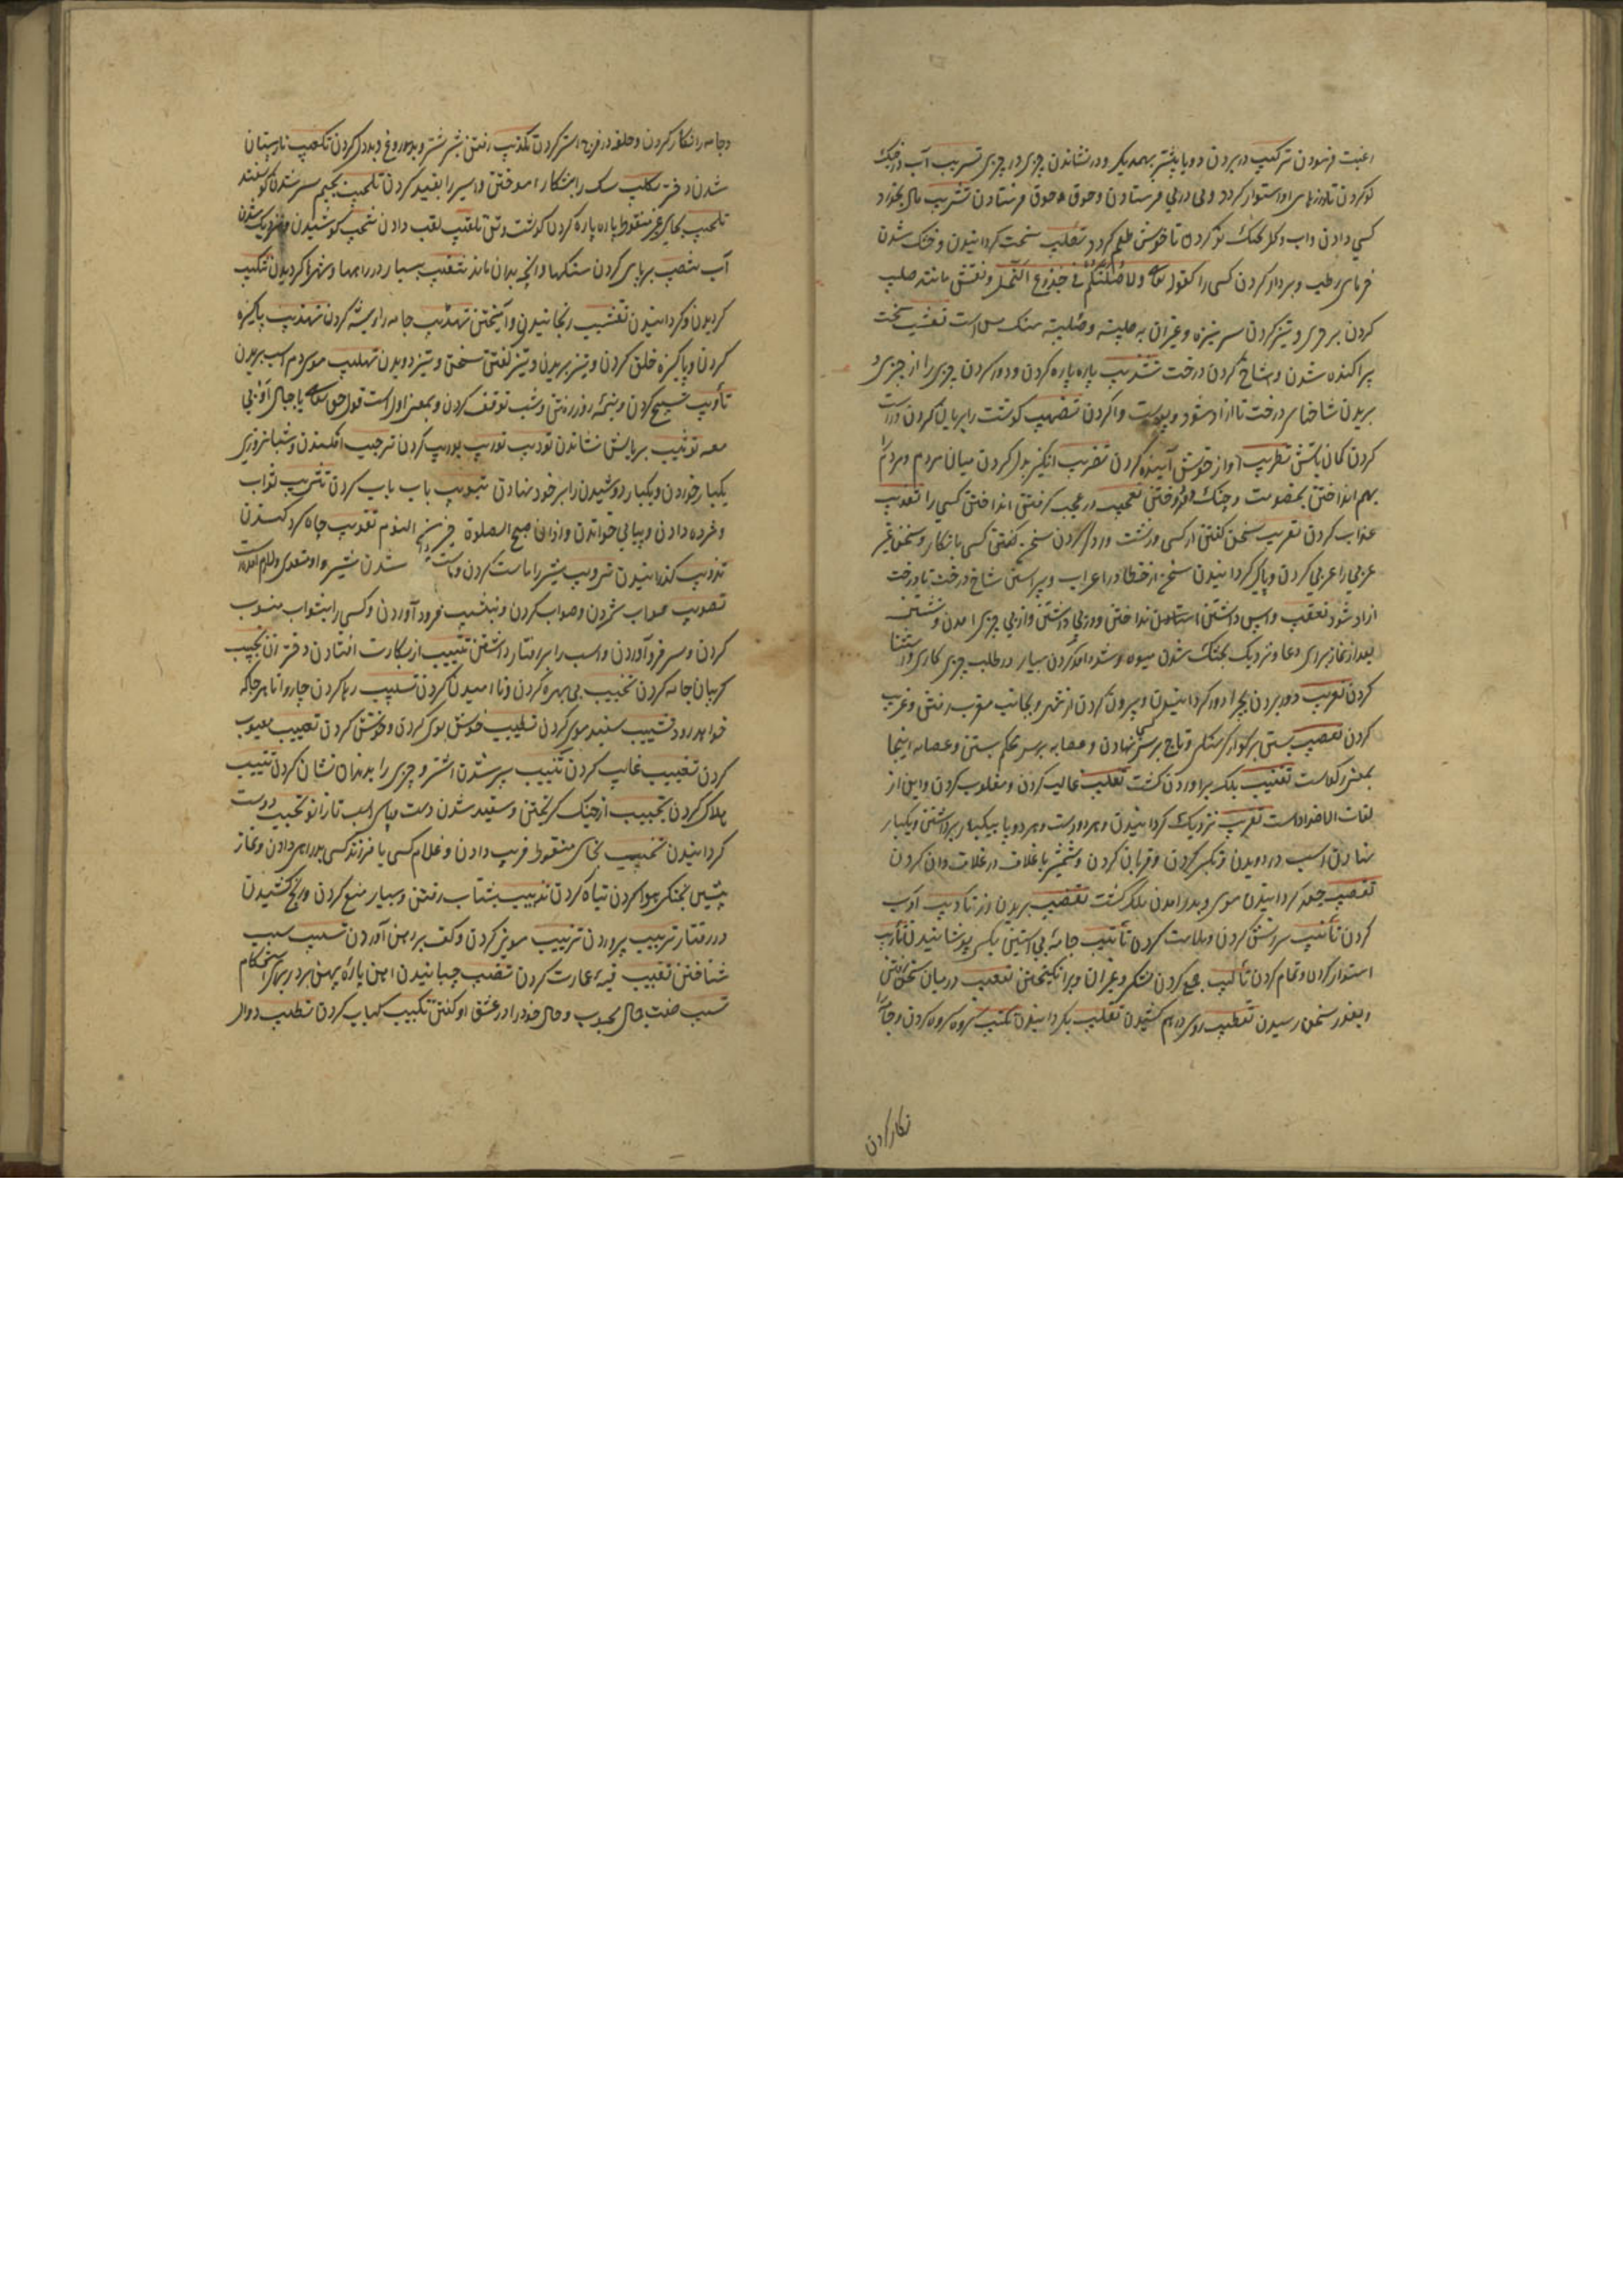 رغبت فرمودن ترکیب دربردن دو یا بیشتر بهمدیگر و در نشاندن چیزی در چیزی تسریب آب در خیک
نو کردن تا درزهای او استوار کردد و پی در پی فرستادن و جوق جوق فرستادن تشریب مال بخورد
کسی دادن و آب و کل بخیک نو کردن تا خوش طعم کردد تصلیب سخت کردانیدن و خشک شدن
خرمای رطب و بردار کردن کسی را کقوله تعالی ولاصلبنکم فی جذوع النخل و نقش مانند صلیب
کردن بر چیزی و تیز کردن سر نیزه و غیر آن به صلبیه و صلبیه سنک مس است تشعیب سخت
پراکنده شدن و بشاخ کردن درخت تشذیب پاره پاره کردن و دور کردن چیزی را از چیزی و
بریدن شاخهای درخت تا آزاد شود و پوست وا کردن تضهیب کوشت را بریان کردن و درست
کردن کمان بآتش تطریب آواز خوش آینده کردن تضریب انکیز بدل کردن میان مردم و مردم را
بهم انداختن بخصومت و جنک تعجیب در عجب کرفتن انداختن کسی را تعذیب
عذاب کردن تعریب سخن کفتن از کسی و زشت و رد کردن سخن کفتن کسی بانکار و سخن غیر
عربی را عربی کردن و پاک کردانیدن سخن از خطا در اعراب و پیراستن شاخ درخت تا درخت
آزاد شود تعقیب واپس داشتن انداختن و در پی داشتن و از پی چیزی آمدن و نشستن
بعد از نماز برای دعا و نزدیک بخشک شدن میوه و آمد شد کردن بسیار در طلب چیزی کاری و استثنا
کردن تغریب دور بردن بچرا و دور کردانیدن و بیرون کردن از شهر و بجانب مغرب رفتن و غریب
کردن تعصیب بستن بر کوار کرسنکی و تاج بر سر کسی نهادن و عصابه بر سر محکم بستن و عصابه اینجا
بمعنی رکوست تعقیب بلک برآوردن کشت تغلیب غالب کردن و مغلوب کردن و این از
لغات الاضداد است تقریب نزدیک کردانیدن و هر دو دست و هر دو پا بیکبار برداشتن و یکبار
نهادن اسب در دویدن و قربان کردن و شمشیر با غلاف در غلاف دان کردن
تقصیب جعد کردانیدن موی و بدر آمدن بلک کشت تقضیب بریدن رز تادیب ادب
کردن تأنیب سرزنش کردن و ملامت کردن تأتیب جامهٔ بی آستین بکسی پوشانیدن تأریب
استوار کردن و تمام کردن تألیب جمع کردن لشکر و غیر آن و برانکیختن تقعیب در میان سخن رفتن
و بغور سخن رسیدن تقطیب روی درهم کشیدن تقلیب بکردانیدن تکتیب کروه کروه کردن و جامه را
نکار کردن
و جامه را نکار کردن و حلقه در فرج استر کردن تکذیب رفتن شیر شتر و بدروغ و بددل کردن تکعیب نار پستان
شدن دختر تکلیب سک را بشکار آموختن و اسیر را بقید کردن تلجیب بجیم سیر شدن کوسفند
تلحیب بحای غیر منقوط پاره پاره کردن کوشت و تن تلقیب لقب دادن تنحیب کوشیدن و نزدیک شدن
آب تنصیب برپای کردن سنکها و آنچه بدان ماند تنقیب بسیار در راهها و شهرها کردیدن تنکیب
کردیدن و کردانیدن تنشیب رنجانیدن و آمیختن تهدیب جامه را ریشه کردن تهذیب پاکیزه
کردن و پاکیزه خلق کردن و تیز بریدن و تیز کفتن سخن و تیز دویدن تهلیب موی دم اسب بریدن
تأویب تسبیح کردن و بهمه روز رفتن و شب توقف کردن و بمعنی اول است قول حق تعالی یا جبال اوبی
معه توثیب بر بالش نشاندن توریب توریب بوریب کردن ترجیب افکندن و شبانروزی
یکبار خوردن و یکبار دوشیدن را بر خود نهادن تبویب باب باب کردن تثویب ثواب
و مژده دادن و پیاپی خواندن و اذان صبح الصلوة خیر من النوم تقویب چاه کرد کندن
تذویب کدازانیدن ترویب شیر را ماست کردن و ماست شدن شیر و او متعدی و لازم آمده است
تصویب صواب شمردن و صواب کردن و بنشیب فرود آوردن و کسی را بثواب منسوب
کردن و سر فرود آوردن و اسب را برفتار داشتن تثییب از بکارت افتادن دختر آن تجییب
کریبان جامه کردن تخییب بی بهره کردن و نا امید کردن تسییب رها کردن چاروا تا هر جا که
خواهد رود تشییب سفید موی کردن تطییب خوش بوی کردن و خوش کردن تعییب معیوب
کردن تغییب غایب کردن تنییب پیر شدن اشتر و چیزی را بدندان نشان کردن تتبیب
هلاک کردن تجبیب از جنک کریختن و سفید شدن دست و پای اسب تا زانو تحبیب دوست
کردانیدن تخبیب بخای منقوط فریب دادن و غلام کسی یا فرزند کسی بدراهی دادن و نماز
پیشین بخنکی هوا کردن تباه کردن تذبیب بشتاب رفتن و بسیار منع کردن و رنج کشیدن
در رفتار تربیب پروردن تزبیب مویز کردن و کف بر دهن آوردن تسبیب سبب
شناختن تقبیب قبه عمارت کردن تضبیب چسپانیدن آهن پارهٔ پهن بر در برای استحکام
تشبیب صفت جمال محبوب و حال خود را در عشق او کفتن تکبیب کباب کردن تطبیب دوال